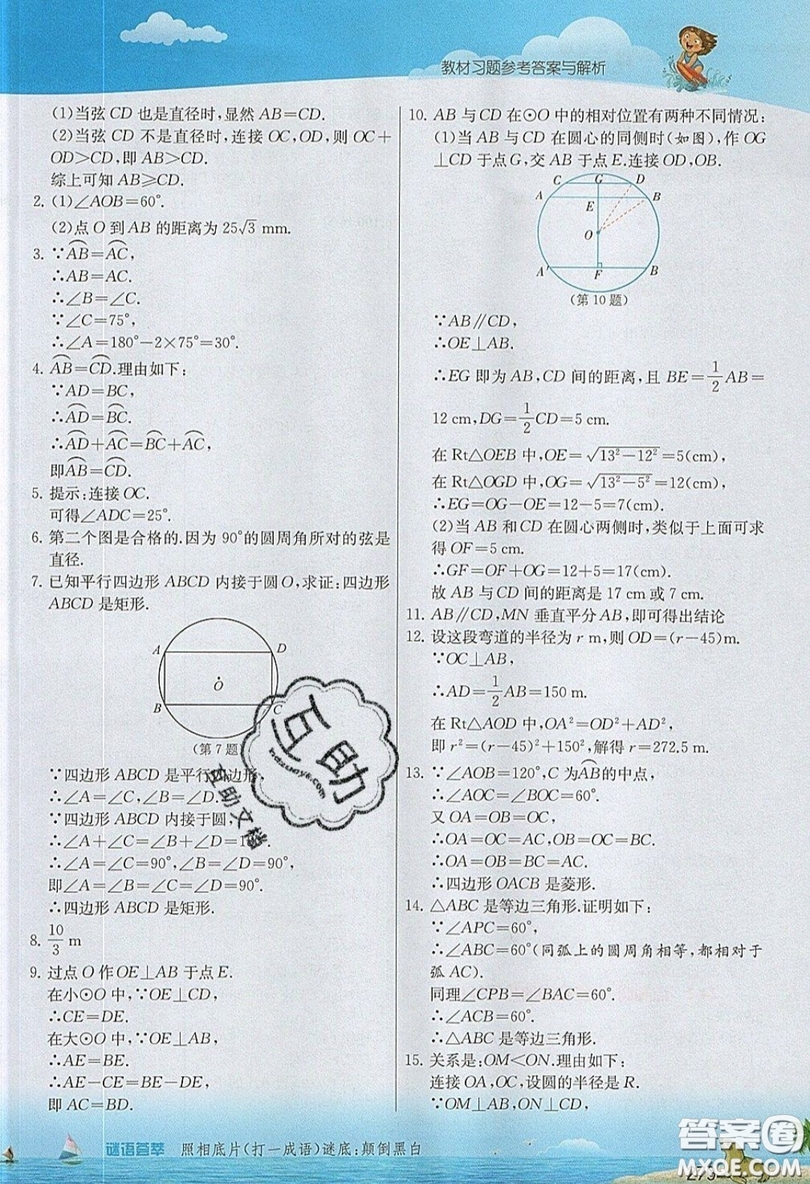 教材习题参考答案与解析
(1)当弦 CD 也是直径时,显然 AB=CD.
(2)当弦 CD 不是直径时,连接 OC,OD,则 OC+
OD>CD,即 AB>CD.
综上可知 AB≥CD.
2. (1)∠AOB=60°.
(2)点 O 到 AB 的距离为 25√3 mm.
3. ∵A͡B=A͡C,
∴AB=AC.
∴∠B=∠C.
∵∠C=75°,
∴∠A=180°-2×75°=30°.
4. A͡B=C͡D.理由如下:
∵AD=BC,
∴A͡D=B͡C.
∴A͡D+A͡C=B͡C+A͡C,
即A͡B=C͡D.
5. 提示:连接 OC.
可得∠ADC=25°.
6. 第二个图是合格的.因为 90°的圆周角所对的弦是
直径.
7. 已知平行四边形 ABCD 内接于圆 O,求证:四边形
ABCD 是矩形.
A D
O
B C
(第 7 题
∵四边形 ABCD 是平行四边形
∴∠A=∠C,∠B=∠D.
∵四边形 ABCD 内接于圆,
∴∠A+∠C=∠B+∠D=
∴∠A=∠C=90°,∠B=∠D=90°.
即∠A=∠C=∠B=∠D=90°.
∴四边形 ABCD 是矩形.
8. 10/3 m
9. 过点 O 作 OE⊥AB 于点 E.
在小⊙O 中,∵OE⊥CD,
∴CE=DE.
在大⊙O 中,∵OE⊥AB,
∴AE=BE.
∴AE-CE=BE-DE,
即 AC=BD.
10. AB 与 CD 在⊙O 中的相对位置有两种不同情况:
(1)当 AB 与 CD 在圆心的同侧时(如图),作 OG
⊥CD 于点 G,交 AB 于点 E.连接 OD,OB.
C G D
A E B
O
A' F B
(第 10 题)
∵AB∥CD,
∴OE⊥AB.
∴EG 即为 AB,CD 间的距离,且 BE=1/2 AB=
12 cm,DG=1/2 CD=5 cm.
在 Rt△OEB 中,OE=√(13²-12²)=5(cm),
在 Rt△OGD 中,OG=√(13²-5²)=12(cm),
∴EG=OG-OE=12-5=7(cm).
(2)当 AB 和 CD 在圆心两侧时,类似于上面可求
得 OF=5 cm.
∴GF=OF+OG=12+5=17(cm).
故 AB 与 CD 间的距离是 17 cm 或 7 cm.
11. AB∥CD,MN 垂直平分 AB,即可得出结论
12. 设这段弯道的半径为 r m,则 OD=(r-45)m.
∵OC⊥AB,
∴AD=1/2 AB=150 m.
在 Rt△AOD 中,OA²=OD²+AD²,
即 r²=(r-45)²+150²,解得 r=272.5 m.
13. ∵∠AOB=120°,C 为A͡B的中点,
∴∠AOC=∠BOC=60°.
又 OA=OB=OC,
∴OA=OC=AC,OB=OC=BC.
∴OA=OB=BC=AC.
∴四边形 OACB 是菱形.
14. △ABC 是等边三角形.证明如下:
∵∠APC=60°,
∴∠ABC=60°(同弧上的圆周角相等,都相对于
弧 AC).
同理∠CPB=∠BAC=60°.
∴∠ACB=60°.
∴△ABC 是等边三角形.
15. 关系是:OM<ON.理由如下:
连接 OA,OC,设圆的半径是 R.
∵OM⊥AB,ON⊥CD,
互助
互助文档
谜语荟萃 照相底片(打一成语)谜底:颠倒黑白
答案圈
MXQE.COM